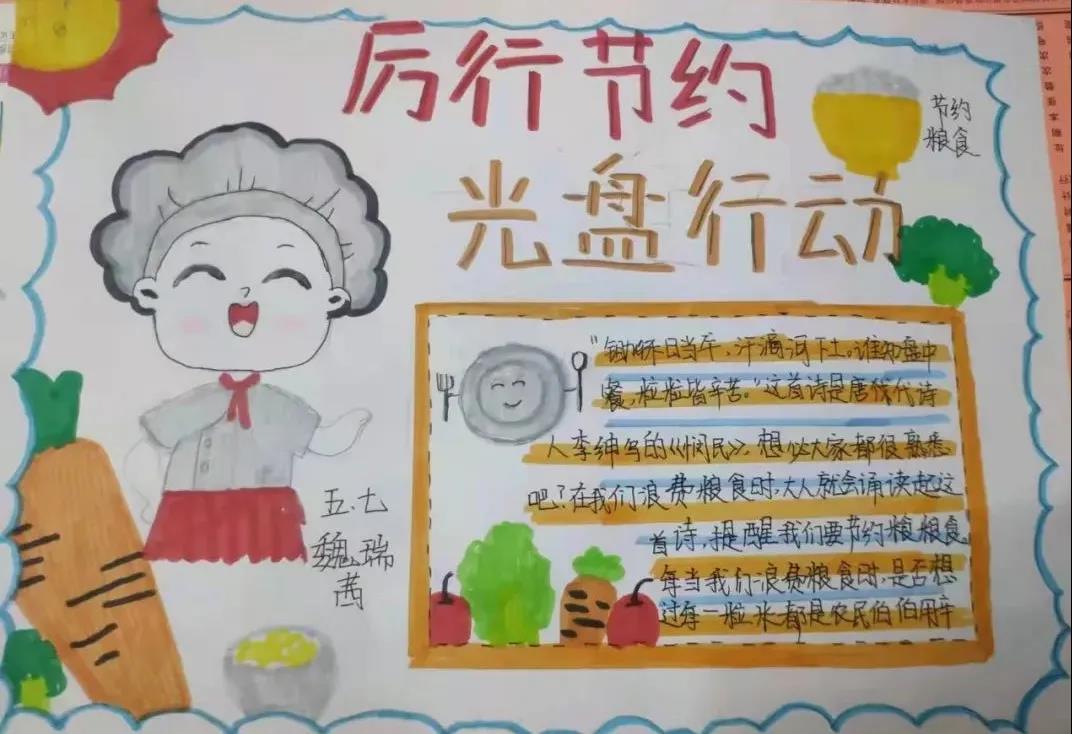 厉行节约
光盘行动
节约
粮食
"锄禾日当午，汗滴河下土。谁知盘中
餐，粒粒皆辛苦。"这首诗是唐代代诗
人李绅写的《悯民》，想必大家都很熟悉
吧？在我们浪费粮食时，大人就会诵读起这
首诗，提醒我们要节约粮粮食
每当我们浪费粮食时，是否想
过每一粒米都是农民伯伯用辛
五.七
魏瑞
茜